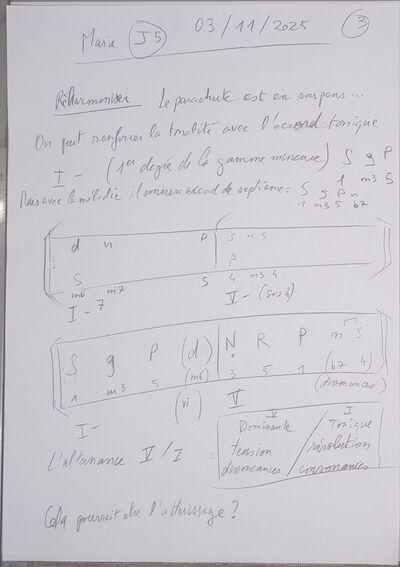 Marie J5 03/11/2025 3
Réharmoniser Le parachute est en suspens...
On peut renforcer la tonalité avec l'accord tonique
I - (1er degré de la gamme mineure) S g P
1 m3 5
Mais avec la mélodie il amène accord de septième = S g P n
1 m3 5 b7
d n P S n S
P
S 5 4 m3 4
m6 m7
I-7 V- (sus4)
S g P (d) N R P n S
1 m3 5 (m6) 3 5 1 (b7 4)
(vi) (dissonances)
I- V
L'alternance V / I = V Dominante / I Tonique
tension / résolution
dissonances / consonances
Cela pourrait être l'atterissage ?